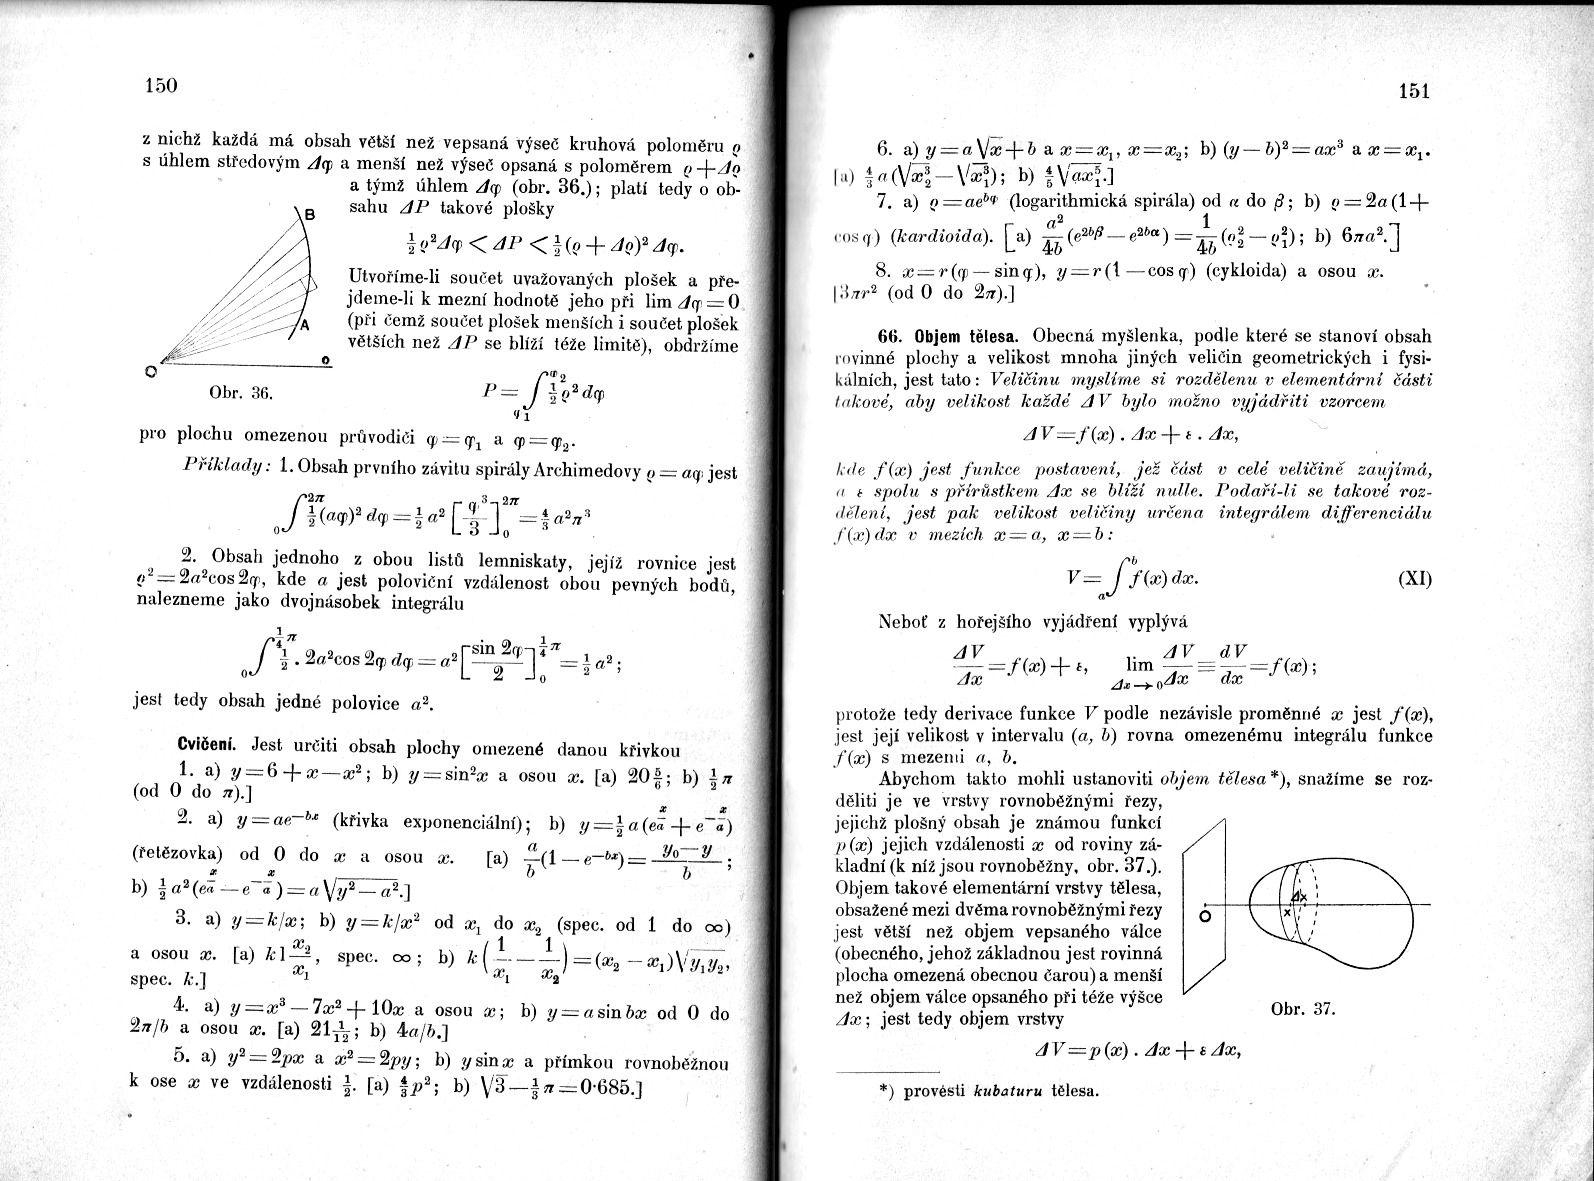 150
z nichž každá má obsah větší než vepsaná výseč kruhová poloměru ϱ
s úhlem středovým Δφ a menší než výseč opsaná s poloměrem ϱ + Δϱ
a týmž úhlem Δφ (obr. 36.); platí tedy o ob-
sahu ΔP takové plošky
½ϱ²Δφ < ΔP < ½(ϱ + Δϱ)² Δφ.
Utvoříme-li součet uvažovaných plošek a pře-
jdeme-li k mezní hodnotě jeho při lim Δφ = 0
(při čemž součet plošek menších i součet plošek
větších než ΔP se blíží téže limitě), obdržíme
B
A
O
o
Obr. 36.
P = ∫_{φ₁}^{φ₂} ½ϱ² dφ
pro plochu omezenou průvodiči φ = φ₁ a φ = φ₂.
Příklady: 1. Obsah prvního závitu spirály Archimedovy ϱ = aφ jest
₀∫^{2π} ½(aφ)² dφ = ½ a² [φ³/3]₀^{2π} = 4/3 a²π³
2. Obsah jednoho z obou listů lemniskaty, jejíž rovnice jest
ϱ² = 2a²cos 2φ, kde a jest poloviční vzdálenost obou pevných bodů,
nalezneme jako dvojnásobek integrálu
₀∫^{¼π} ½ . 2a²cos 2φ dφ = a² [sin 2φ/2]₀^{¼π} = ½ a²;
jest tedy obsah jedné polovice a².
Cvičení. Jest určiti obsah plochy omezené danou křivkou
1. a) y = 6 + x — x²; b) y = sin²x a osou x. [a) 20⅚; b) ½π
(od 0 do π).]
2. a) y = ae^{—bx} (křivka exponenciální); b) y = ½ a (e^{x/a} + e^{—x/a})
(řetězovka) od 0 do x a osou x. [a) a/b (1 — e^{—bx}) = (y₀ — y)/b ;
b) ½ a² (e^{x/a} — e^{—x/a}) = a √(y² — a²).]
3. a) y = k/x; b) y = k/x² od x₁ do x₂ (spec. od 1 do ∞)
a osou x. [a) k l x₂/x₁, spec. ∞; b) k (1/x₁ — 1/x₂) = (x₂ — x₁)√(y₁y₂),
spec. k.]
4. a) y = x³ — 7x² + 10x a osou x; b) y = a sin bx od 0 do
2π/b a osou x. [a) 21 1/12; b) 4a/b.]
5. a) y² = 2px a x² = 2py; b) y sin x a přímkou rovnoběžnou
k ose x ve vzdálenosti ½. [a) 4/3 p²; b) √3 — ⅓π = 0·685.]
151
6. a) y = a √x + b a x = x₁, x = x₂; b) (y — b)² = ax³ a x = x₁.
[a) 4/3 a (√x₂³ — √x₁³); b) 4/5 √(ax₁⁵).]
7. a) ϱ = ae^{bφ} (logarithmická spirála) od α do β; b) ϱ = 2a (1 +
cos φ) (kardioida). [a) a²/4b (e^{2bβ} — e^{2bα}) = 1/4b (ϱ₂² — ϱ₁²); b) 6πa².]
8. x = r (φ — sin φ), y = r (1 — cos φ) (cykloida) a osou x.
[3πr² (od 0 do 2π).]
66. Objem tělesa. Obecná myšlenka, podle které se stanoví obsah
rovinné plochy a velikost mnoha jiných veličin geometrických i fysi-
kálních, jest tato: Veličinu myslíme si rozdělenu v elementární části
takové, aby velikost každé ΔV bylo možno vyjádřiti vzorcem
ΔV = f (x) . Δx + ε . Δx,
kde f (x) jest funkce postavení, jež část v celé veličině zaujímá,
a ε spolu s přírůstkem Δx se blíží nulle. Podaří-li se takové roz-
dělení, jest pak velikost veličiny určena integrálem differenciálu
f (x) dx v mezích x = a, x = b:
V = ₐ∫^{b} f (x) dx. (XI)
Neboť z hořejšího vyjádření vyplývá
ΔV/Δx = f (x) + ε, lim_{Δx→0} ΔV/Δx = dV/dx = f (x);
protože tedy derivace funkce V podle nezávisle proměnné x jest f (x),
jest její velikost v intervalu (a, b) rovna omezenému integrálu funkce
f (x) s mezemi a, b.
Abychom takto mohli ustanoviti objem tělesa*), snažíme se roz-
děliti je ve vrstvy rovnoběžnými řezy,
jejichž plošný obsah je známou funkcí
p (x) jejich vzdálenosti x od roviny zá-
kladní (k níž jsou rovnoběžny, obr. 37.).
Objem takové elementární vrstvy tělesa,
obsažené mezi dvěma rovnoběžnými řezy
jest větší než objem vepsaného válce
(obecného, jehož základnou jest rovinná
plocha omezená obecnou čarou) a menší
než objem válce opsaného při téže výšce
Δx; jest tedy objem vrstvy
O
x
Δx
Obr. 37.
ΔV = p (x) . Δx + ε Δx,
*) provésti kubaturu tělesa.